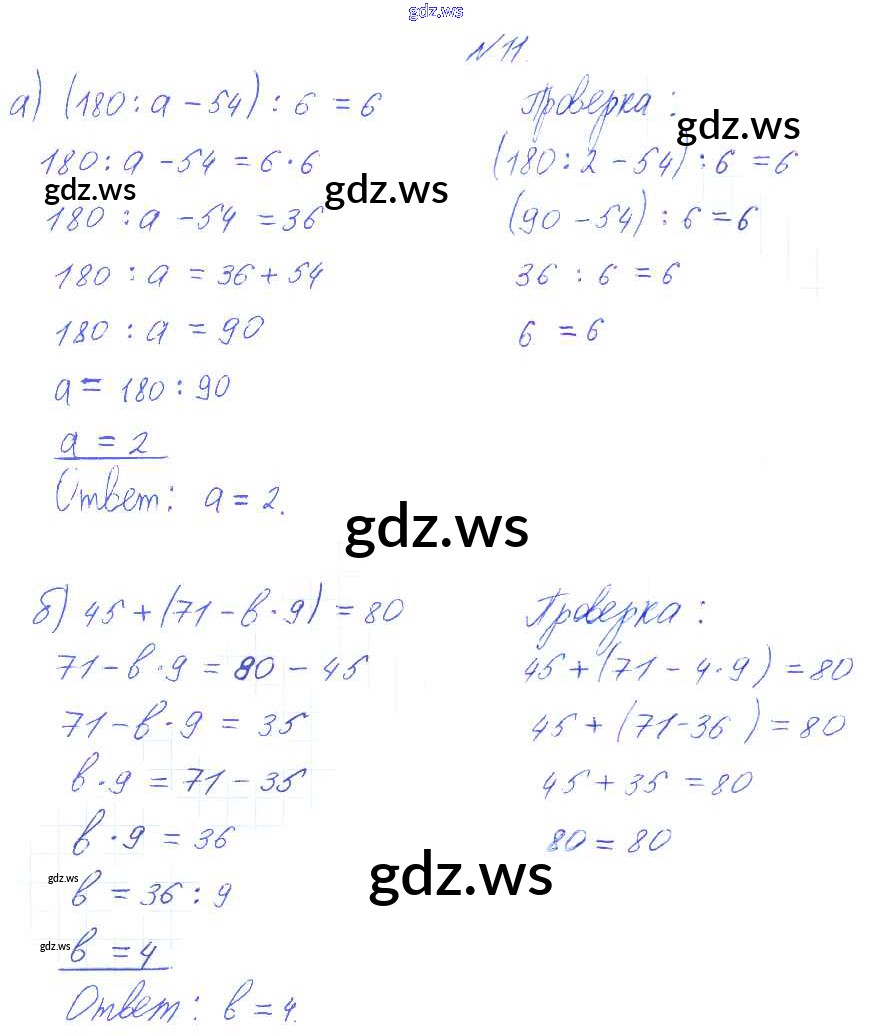 gdz.ws
№11.
а) (180 : а − 54) : 6 = 6
180 : а − 54 = 6 · 6
gdz.ws
gdz.ws
180 : а − 54 = 36
180 : а = 36 + 54
180 : а = 90
а = 180 : 90
а = 2
Ответ: а = 2.
Проверка:
gdz.ws
(180 : 2 − 54) : 6 = 6
(90 − 54) : 6 = 6
36 : 6 = 6
6 = 6
gdz.ws
б) 45 + (71 − в · 9) = 80
71 − в · 9 = 80 − 45
71 − в · 9 = 35
в · 9 = 71 − 35
в · 9 = 36
gdz.ws
в = 36 : 9
gdz.ws
в = 4
Ответ: в = 4.
Проверка:
45 + (71 − 4 · 9) = 80
45 + (71 − 36) = 80
45 + 35 = 80
80 = 80
gdz.ws